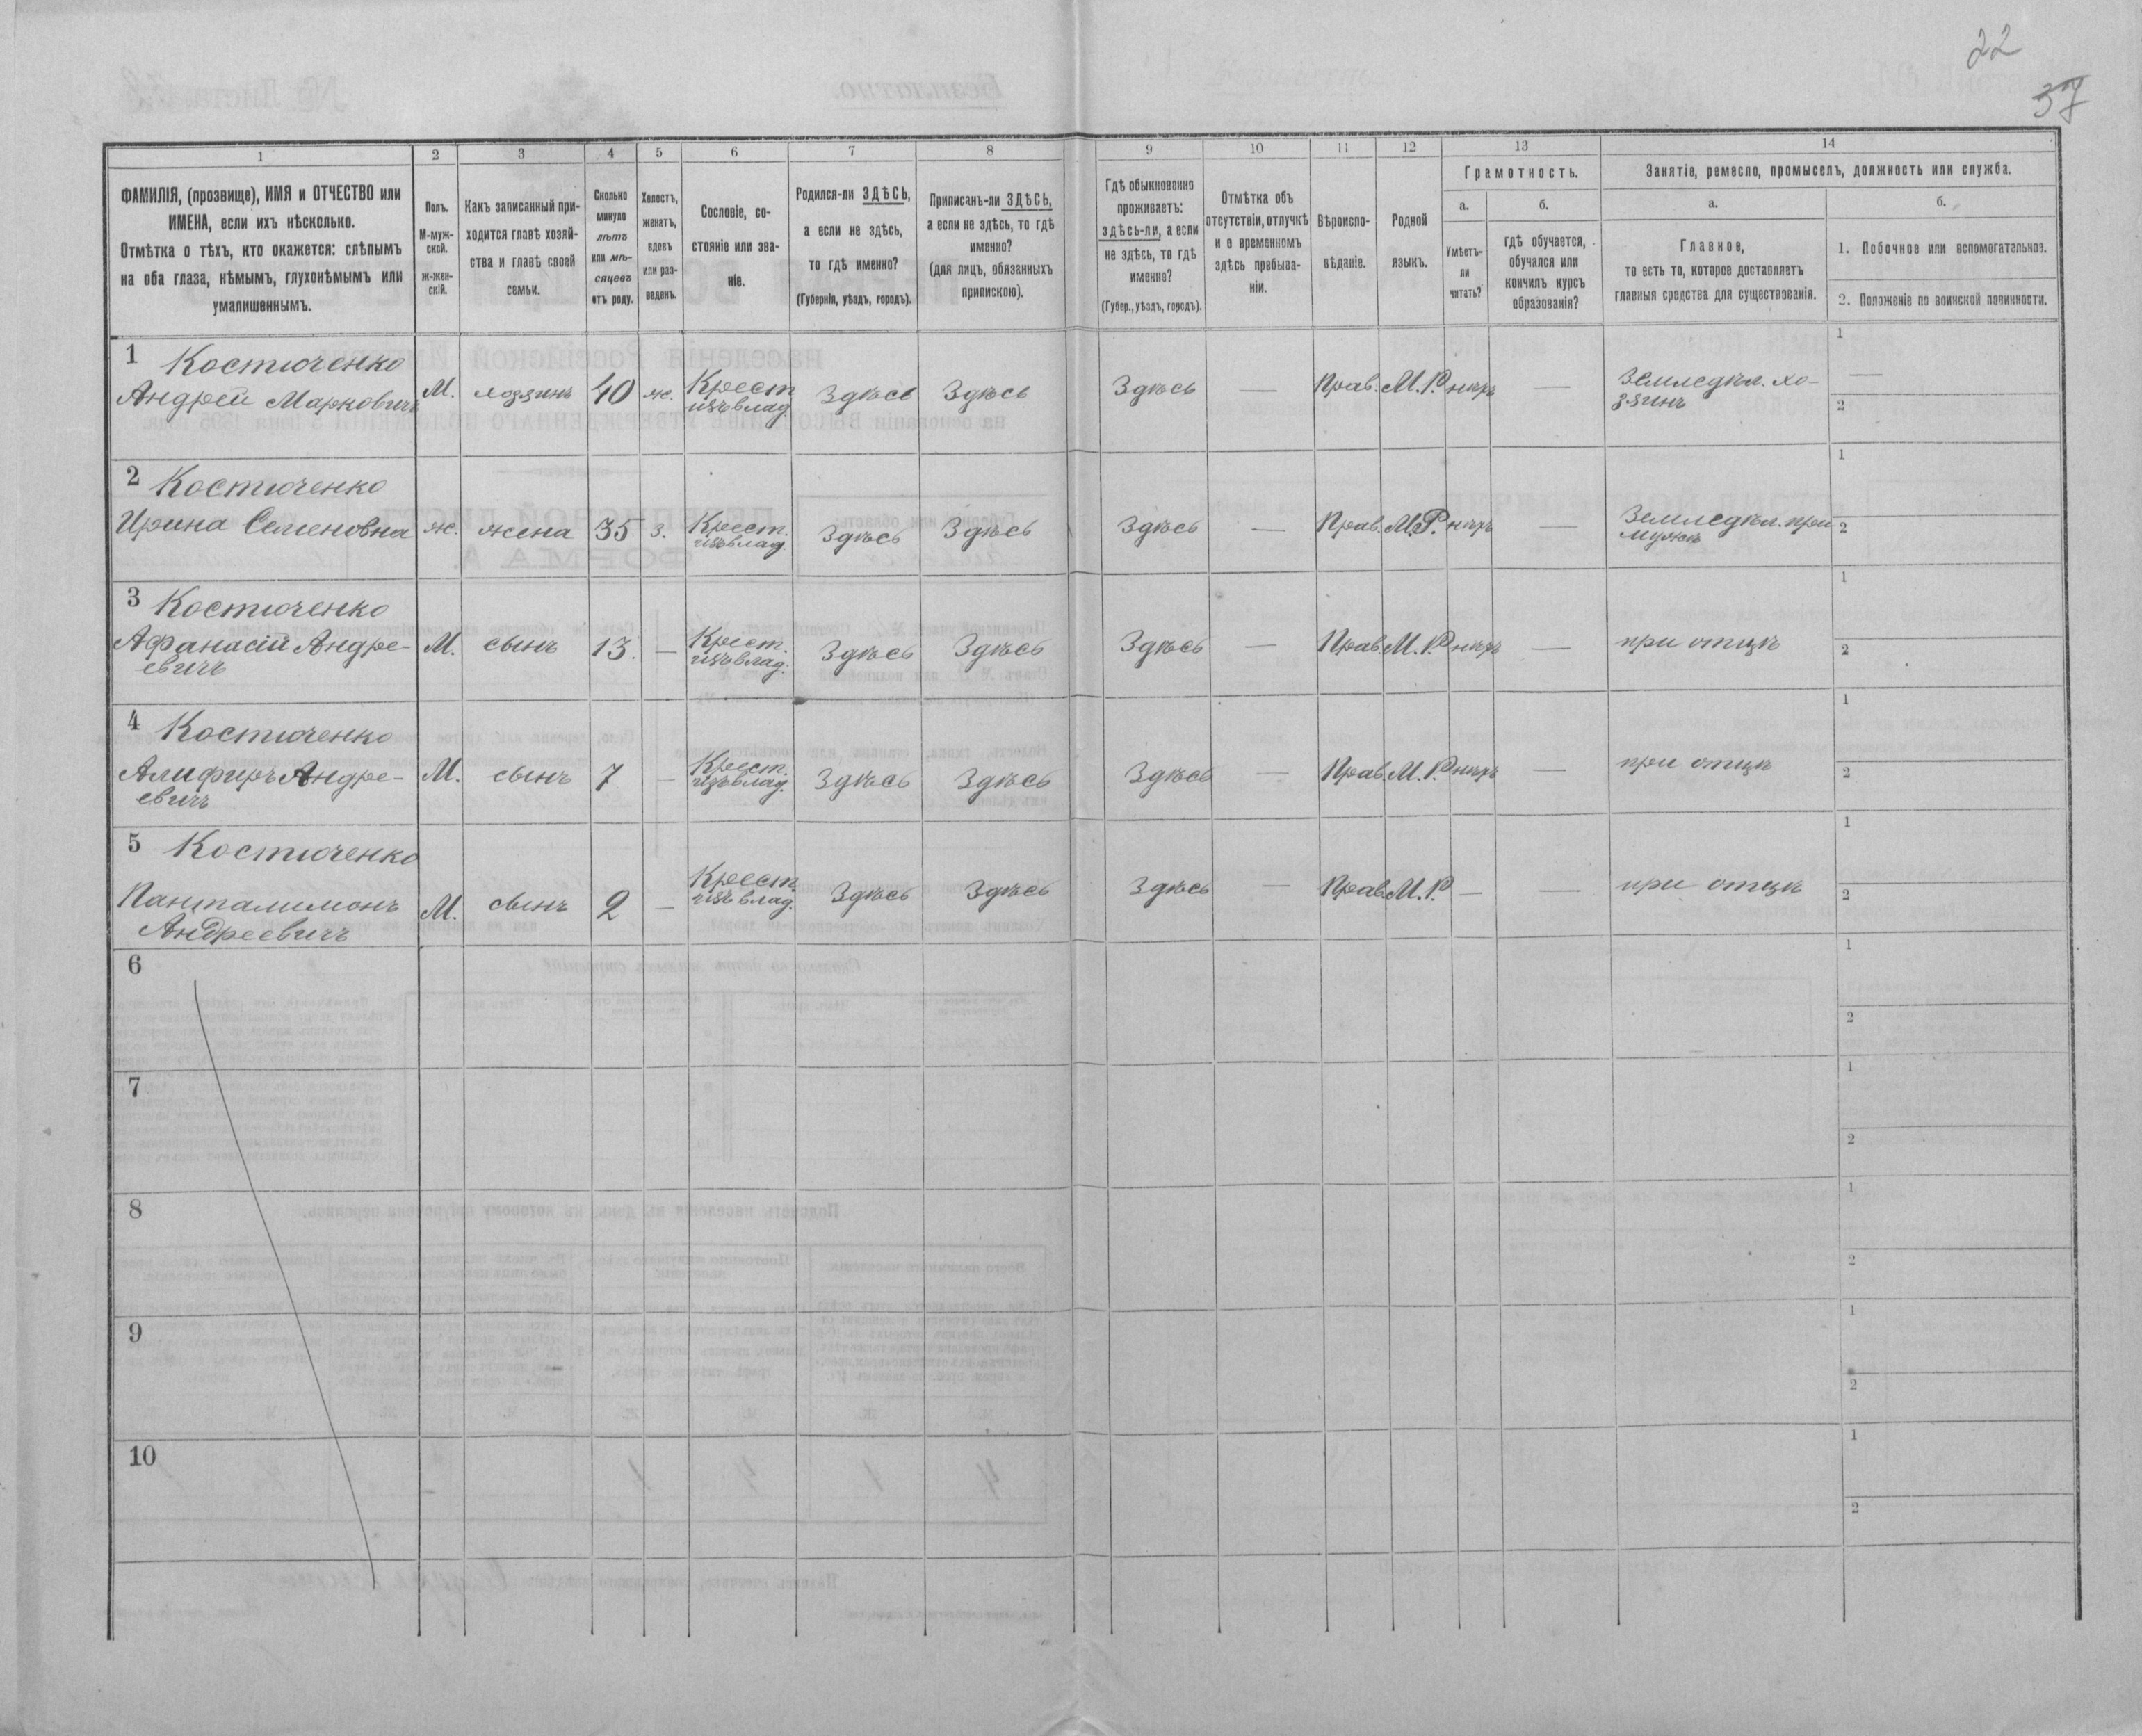 22
37
1
2
3
4
5
6
7
8
9
10
11
12
13
14
ФАМИЛІЯ, (прозвище), ИМЯ и ОТЧЕСТВО или
ИМЕНА, если ихъ нѣсколько.
Отмѣтка о тѣхъ, кто окажется: слѣпымъ
на оба глаза, нѣмымъ, глухонѣмымъ или
умалишеннымъ.
Полъ.
М-муж-
ской.
ж-жен-
скій.
Какъ записанный при-
ходится главѣ хозяй-
ства и главѣ своей
семьи.
Сколько
минуло
лѣтъ
или мѣ-
сяцевъ
отъ роду.
Холостъ,
женатъ,
вдовъ
или раз-
веденъ.
Сословіе, со-
стояніе или зва-
ніе.
Родился-ли ЗДѢСЬ,
а если не здѣсь,
то гдѣ именно?
(Губернія, уѣздъ, городъ).
Приписанъ-ли ЗДѢСЬ,
а если не здѣсь, то гдѣ
именно?
(для лицъ, обязанныхъ
припискою).
Гдѣ обыкновенно
проживаетъ:
здѣсь-ли, а если
не здѣсь, то гдѣ
именно?
(Губер., уѣздъ, городъ).
Отмѣтка объ
отсутствіи, отлучкѣ
и о временномъ
здѣсь пребыва-
ніи.
Вѣроиспо-
вѣданіе.
Родной
языкъ.
Грамотность.
а.
Умѣетъ-
ли
читать?
б.
гдѣ обучается,
обучался или
кончилъ курсъ
образованія?
Занятіе, ремесло, промыселъ, должность или служба.
а.
Главное,
то есть то, которое доставляетъ
главныя средства для существованія.
б.
1. Побочное или вспомогательное.
2. Положеніе по воинской повинности.
1 Костюченко
Андрей Марковичъ
М.
хозяинъ
40
ж.
Крест.
изъ влад.
Здѣсь
Здѣсь
Здѣсь
—
Прав.
М.Р.
нѣтъ
—
Земледѣл. хо-
зяинъ
1
—
2
2 Костюченко
Ирина Семеновна
ж.
жена
35
з.
Крест.
изъ влад.
Здѣсь
Здѣсь
Здѣсь
—
Прав.
М.Р.
нѣтъ
—
Земледѣл. при
мужѣ
1
2
3 Костюченко
Афанасій Андре-
евичъ
М.
сынъ
13
—
Крест.
изъ влад.
Здѣсь
Здѣсь
Здѣсь
—
Прав.
М.Р.
нѣтъ
—
при отцѣ
1
2
4 Костюченко
Алифиръ Андре-
евичъ
М.
сынъ
7
—
Крест.
изъ влад.
Здѣсь
Здѣсь
Здѣсь
—
Прав.
М.Р.
нѣтъ
—
при отцѣ
1
2
5 Костюченко
Панталимонъ
Андреевичъ
М.
сынъ
2
—
Крест.
изъ влад.
Здѣсь
Здѣсь
Здѣсь
—
Прав.
М.Р.
—
—
при отцѣ
1
2
6
1
2
7
1
2
8
1
2
9
1
2
10
1
2